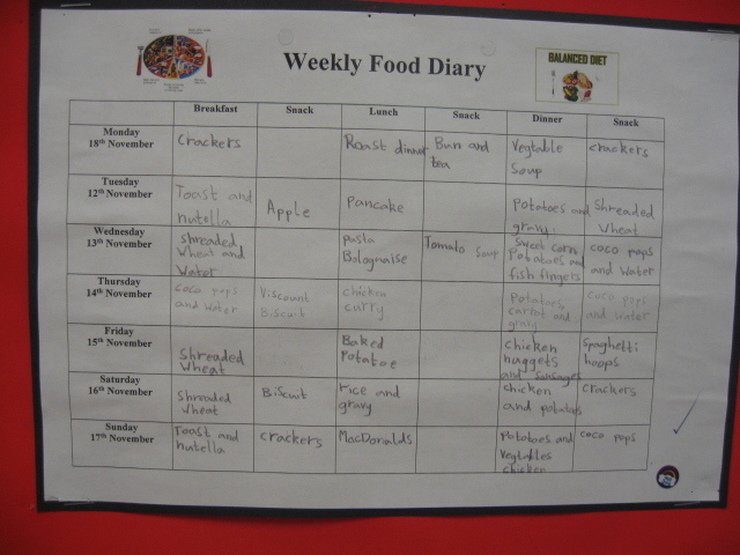 Weekly Food Diary
BALANCED DIET
Breakfast Snack Lunch Snack Dinner Snack
Monday
18th November
Crackers
Roast dinner
Bun and
tea
Vegtable
Soup
crackers
Tuesday
12th November
Toast and
nutella
Apple
Pancake
Potatoes and
gravy
Shreaded
Wheat
Wednesday
13th November
Shreaded
Wheat and
Water
pasta
Bolognaise
Tomato Soup
Sweet corn
Potatoes and
fish fingers
coco pops
and Water
Thursday
14th November
coco pops
and Water
Viscount
Biscuit
chicken
curry
Potatoes,
carrot and
gravy
coco pops
and water
Friday
15th November
Shreaded
Wheat
Baked
Potatoe
chicken
nuggets
and Sausages
Spaghetti
hoops
Saturday
16th November
Shreaded
Wheat
Biscuit
rice and
gravy
chicken
and potatoes
crackers
Sunday
17th November
Toast and
nutella
crackers
MacDonalds
Potatoes and
Vegtables
chicken
coco pops